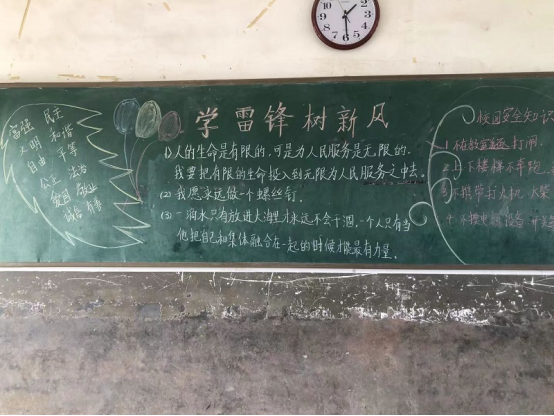 富强 民主
文明 和谐
自由 平等
公正 法治
爱国 敬业
诚信 友善
学雷锋树新风
(1)人的生命是有限的,可是为人民服务是无限的,
我要把有限的生命投入到无限为人民服务之中去。
(2)我愿永远做一个螺丝钉。
(3)一滴水只有放进大海里才永远不会干涸,一个人只有当
他把自己和集体融合在一起的时候才能最有力量。
校园安全知识
打闹
上下楼梯不奔跑
不携带打火机 火柴